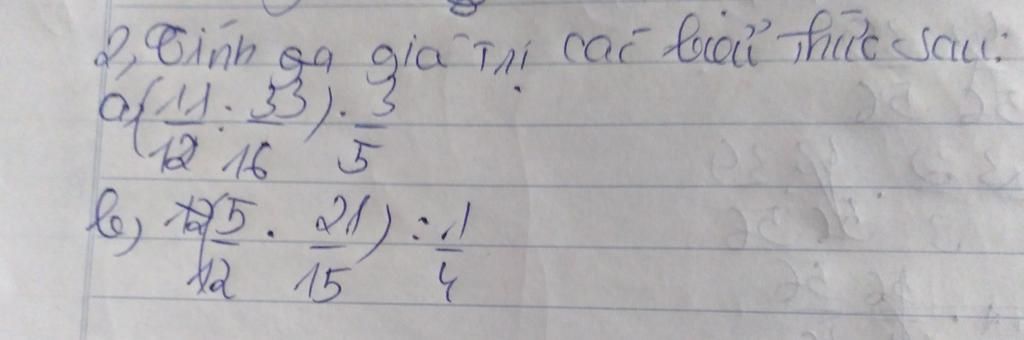 2, Tính ga giá trị các biểu thức sau:
a, (11/12 : 33/16) . 3/5
b, (5/12 . 21/15) : 1/4